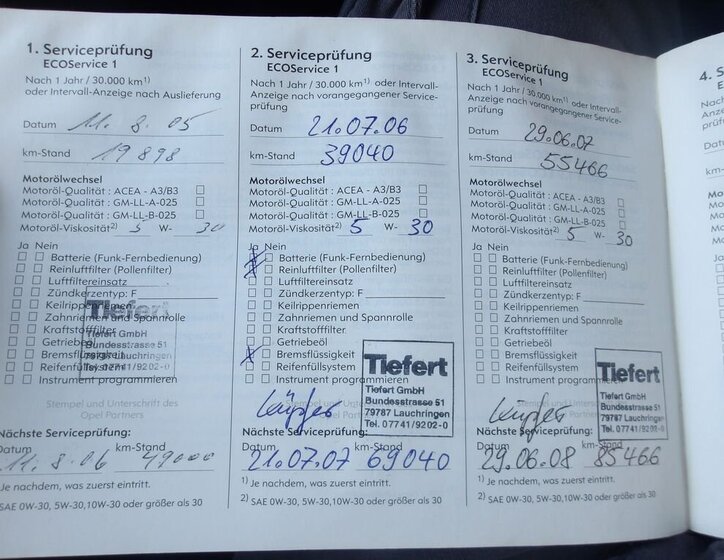 1. Serviceprüfung
ECOService 1
Nach 1 Jahr / 30.000 km¹⁾
oder Intervall-Anzeige nach Auslieferung
Datum 11. 8. 05
km-Stand 19898
Motorölwechsel
Motoröl-Qualität : ACEA - A3/B3 ☐
Motoröl-Qualität : GM-LL-A-025 ☐
Motoröl-Qualität : GM-LL-B-025 ☐
Motoröl-Viskosität²⁾ 5 W- 30
Ja Nein
☐ ☐ Batterie (Funk-Fernbedienung)
☐ ☐ Reinluftfilter (Pollenfilter)
☐ ☐ Luftfiltereinsatz
☐ ☐ Zündkerzentyp: F
☐ ☐ Keilrippenriemen
☐ ☐ Zahnriemen und Spannrolle
☐ ☐ Kraftstofffilter
☐ ☐ Getriebeöl
☐ ☐ Bremsflüssigkeit
☐ ☐ Reifenfüllsystem
☐ ☐ Instrument programmieren
Tiefert
Tiefert GmbH
Bundesstrasse 51
79787 Lauchringen
Tel. 07741/9202-0
Stempel und Unterschrift des
Opel Partners
Nächste Serviceprüfung:
Datum km-Stand
11. 8. 06 49000
¹⁾ Je nachdem, was zuerst eintritt.
²⁾ SAE 0W-30, 5W-30,10W-30 oder größer als 30
2. Serviceprüfung
ECOService 1
Nach 1 Jahr / 30.000 km¹⁾ oder Intervall-
Anzeige nach vorangegangener Service-
prüfung
Datum 21.07.06
km-Stand 39040
Motorölwechsel
Motoröl-Qualität : ACEA - A3/B3 ☐
Motoröl-Qualität : GM-LL-A-025 ☐
Motoröl-Qualität : GM-LL-B-025 ☐
Motoröl-Viskosität²⁾ 5 W- 30
Ja Nein
☒ ☐ Batterie (Funk-Fernbedienung)
☒ ☐ Reinluftfilter (Pollenfilter)
☐ ☐ Luftfiltereinsatz
☐ ☐ Zündkerzentyp: F
☐ ☐ Keilrippenriemen
☐ ☐ Zahnriemen und Spannrolle
☐ ☐ Kraftstofffilter
☐ ☐ Getriebeöl
☒ ☐ Bremsflüssigkeit
☐ ☐ Reifenfüllsystem
☐ ☐ Instrument programmieren
Tiefert
Tiefert GmbH
Bundesstrasse 51
79787 Lauchringen
Tel. 07741/9202-0
Nächste Serviceprüfung:
Datum km-Stand
21.07.07 69040
¹⁾ Je nachdem, was zuerst eintritt.
²⁾ SAE 0W-30, 5W-30,10W-30 oder größer als 30
3. Serviceprüfung
ECOService 1
Nach 1 Jahr / 30.000 km¹⁾ oder Intervall-
Anzeige nach vorangegangener Service-
prüfung
Datum 29.06.07
km-Stand 55466
Motorölwechsel
Motoröl-Qualität : ACEA - A3/B3 ☐
Motoröl-Qualität : GM-LL-A-025 ☐
Motoröl-Qualität : GM-LL-B-025 ☐
Motoröl-Viskosität²⁾ 5 W- 30
Ja Nein
☐ ☐ Batterie (Funk-Fernbedienung)
☐ ☐ Reinluftfilter (Pollenfilter)
☐ ☐ Luftfiltereinsatz
☐ ☐ Zündkerzentyp: F
☐ ☐ Keilrippenriemen
☐ ☐ Zahnriemen und Spannrolle
☐ ☐ Kraftstofffilter
☐ ☐ Getriebeöl
☐ ☐ Bremsflüssigkeit
☐ ☐ Reifenfüllsystem
☐ ☐ Instrument programmieren
Tiefert
Tiefert GmbH
Bundesstrasse 51
79787 Lauchringen
Tel. 07741/9202-0
Nächste Serviceprüfung:
Datum km-Stand
29.06.08 85466
¹⁾ Je nachdem, was zuerst eintritt.
²⁾ SAE 0W-30, 5W-30,10W-30 oder größer als 30